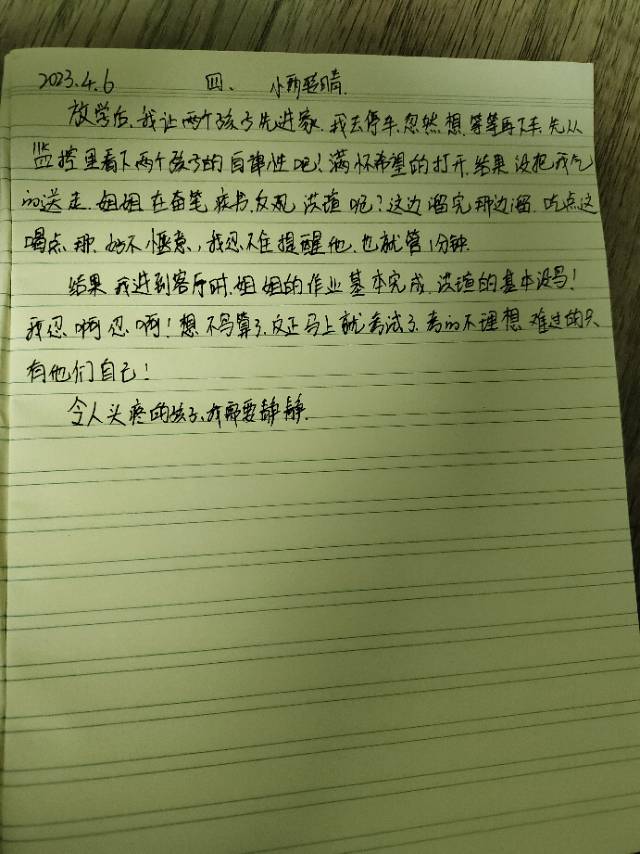 2023.4.6 四、 小雨转晴.
放学后,我让两个孩子先进家,我去停车,忽然想,等等再下车,先从
监控里看下两个孩子的自律性吧!满怀希望的打开,结果没把我气
的送走.姐姐在奋笔疾书,反观洪瑄呢?这边溜完那边溜.吃点这
喝点那,好不惬意,我忍不住提醒他,也就管1分钟.
结果我进到客厅时,姐姐的作业基本完成,洪瑄的基本没写!
我忍啊忍啊!想不写算了,反正马上就考试了,考的不理想,难过的只
有他们自己!
令人头疼的孩子,我需要静静.